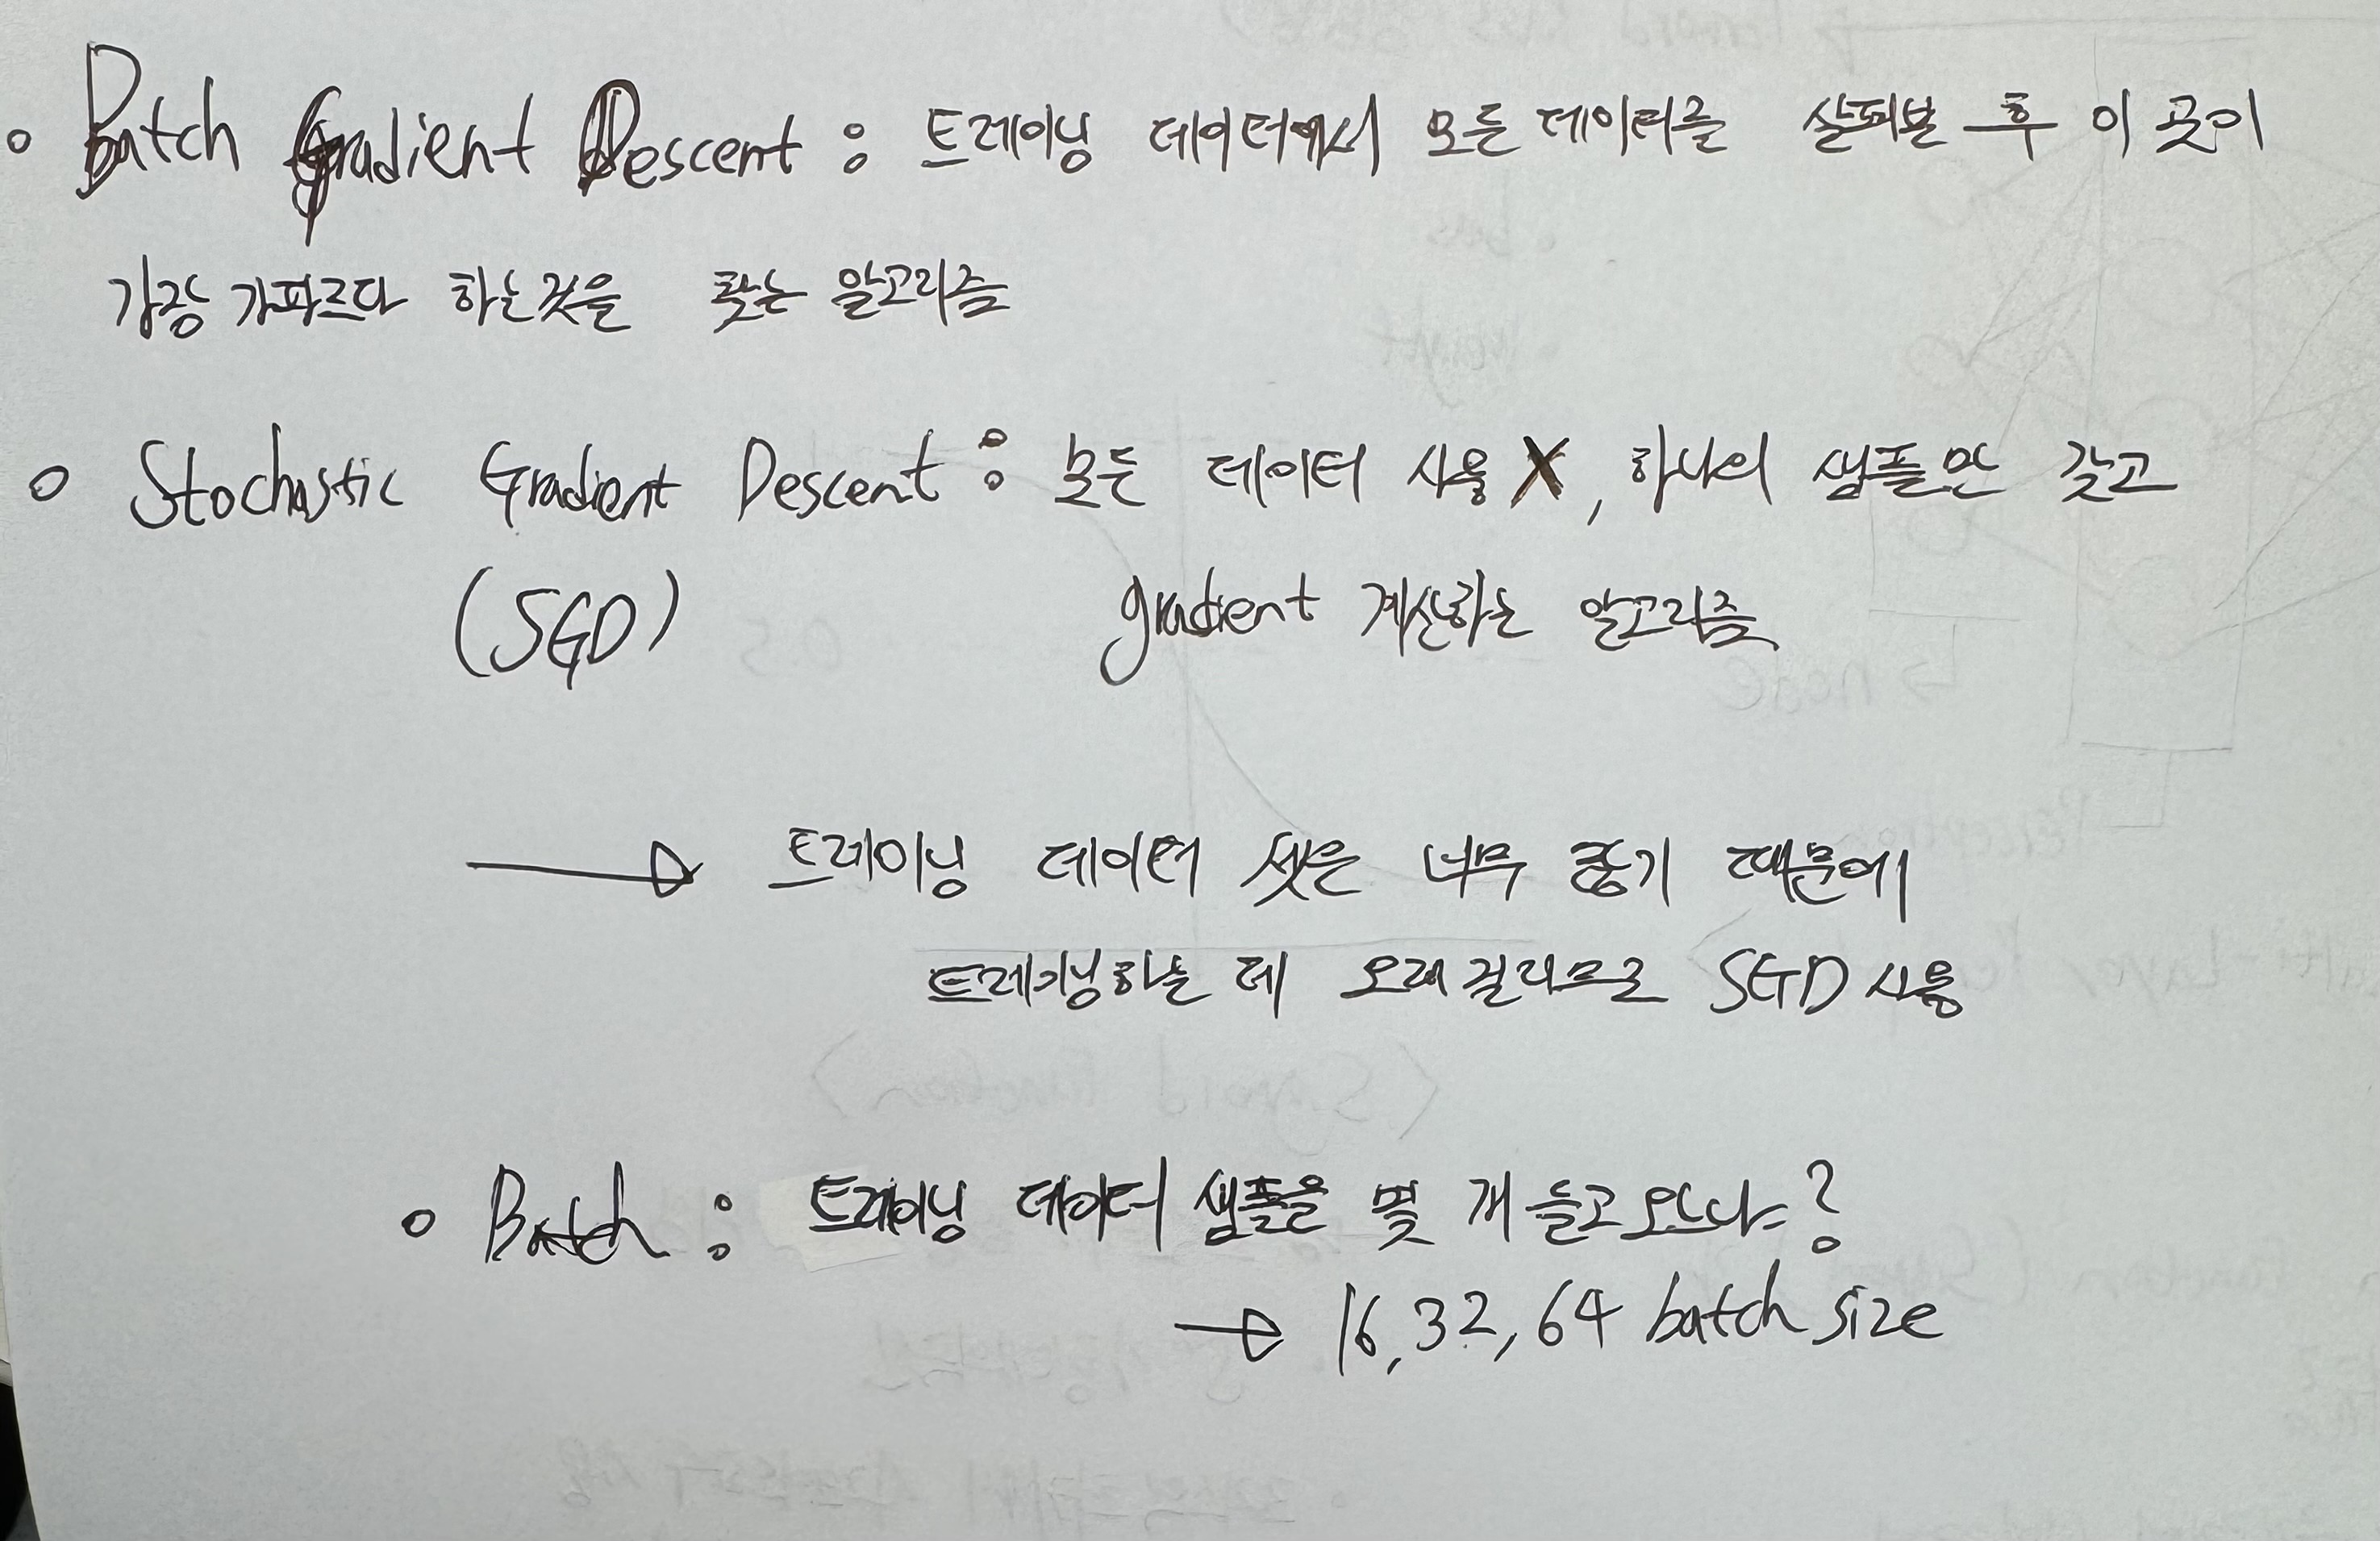 ◦ Batch Gradient Descent : 트레이닝 데이터에서 모든 데이터를 살펴본 후 이 곳이
가장 가파르다 하는것을 찾는 알고리즘
◦ Stochastic Gradient Descent : 모든 데이터 사용 X, 하나의 샘플만 갖고
(SGD) gradient 계산하는 알고리즘
→ 트레이닝 데이터 셋은 너무 크기 때문에
트레이닝하는 데 오래걸리므로 SGD 사용
◦ Batch : 트레이닝 데이터 샘플을 몇 개 들고오느냐?
→ 16, 32, 64 batch size